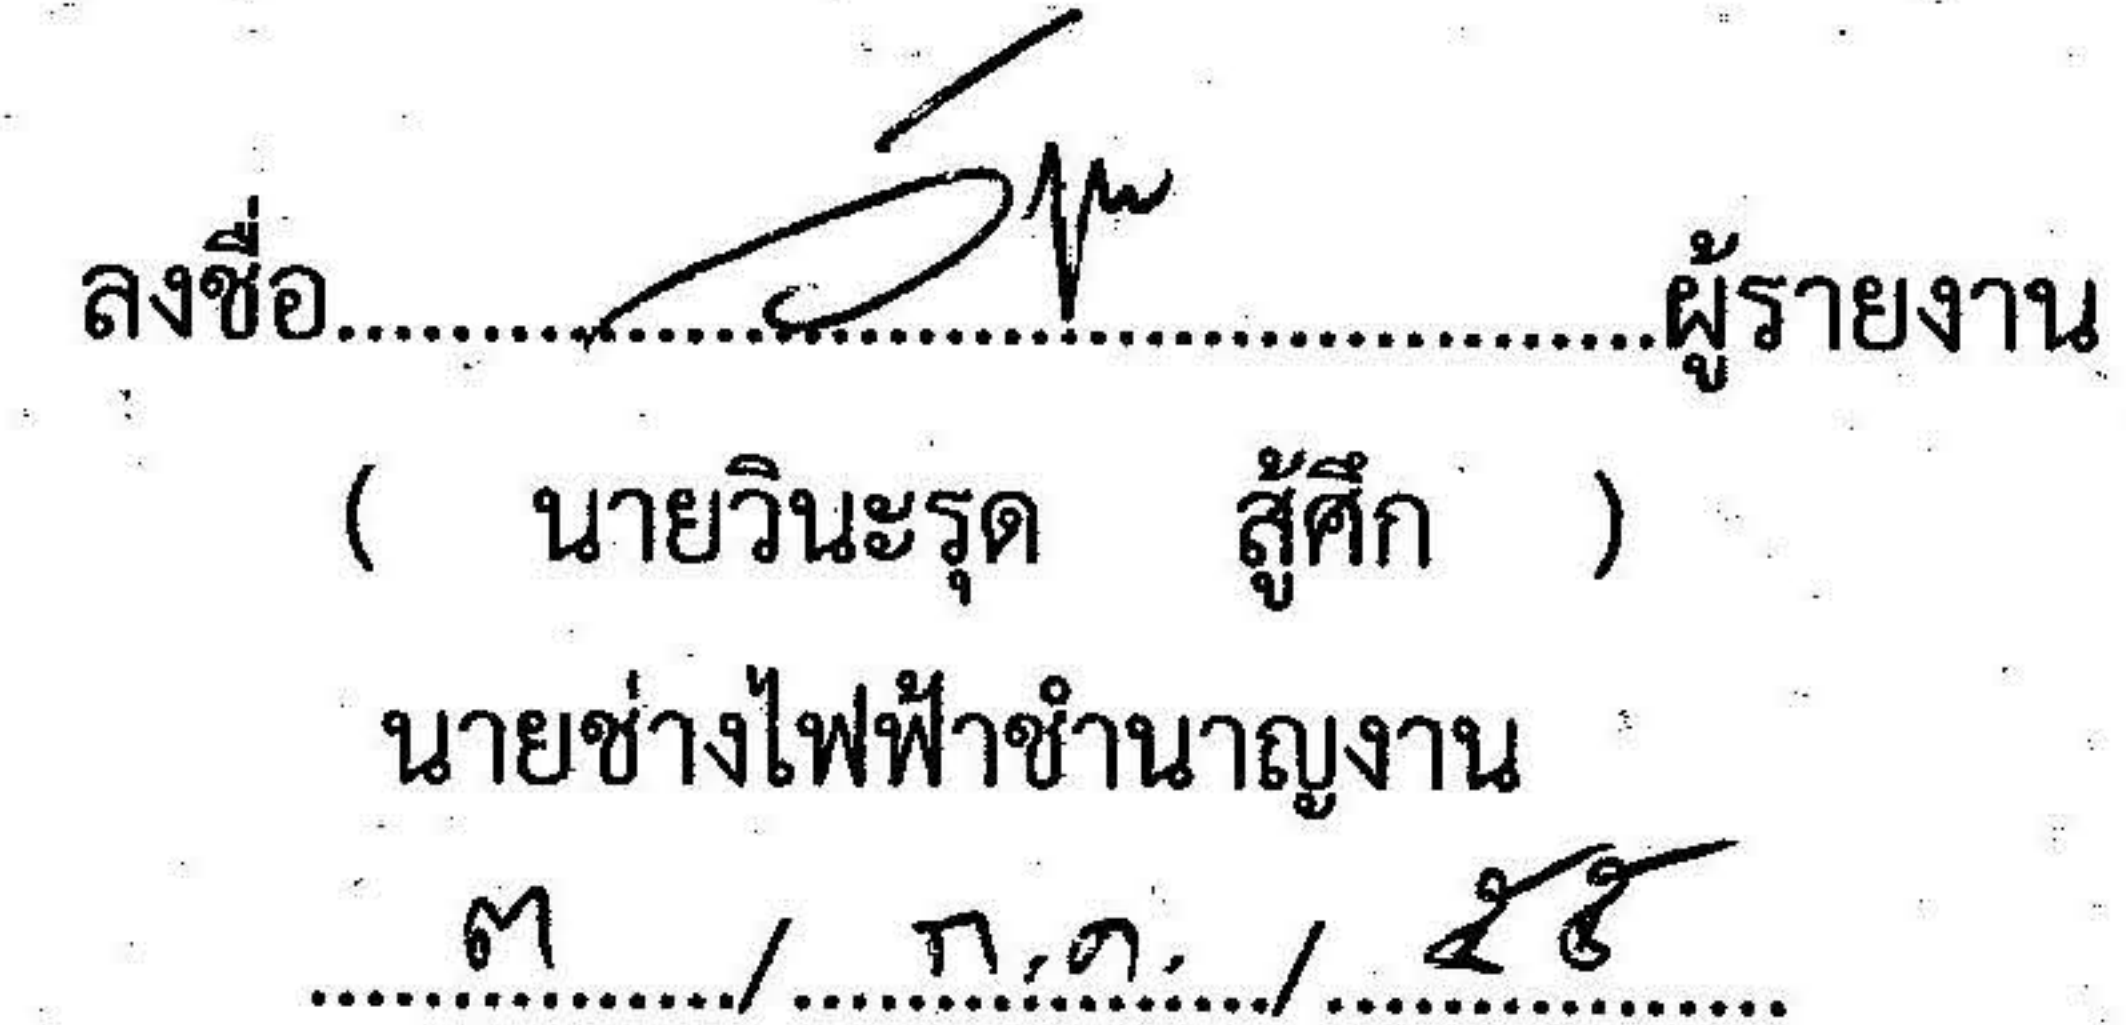 ลงชื่อ........................................ผู้รายงาน
( นายวินะรุด สู้ศึก )
นายช่างไฟฟ้าชำนาญงาน
๓ / ก.ค. /